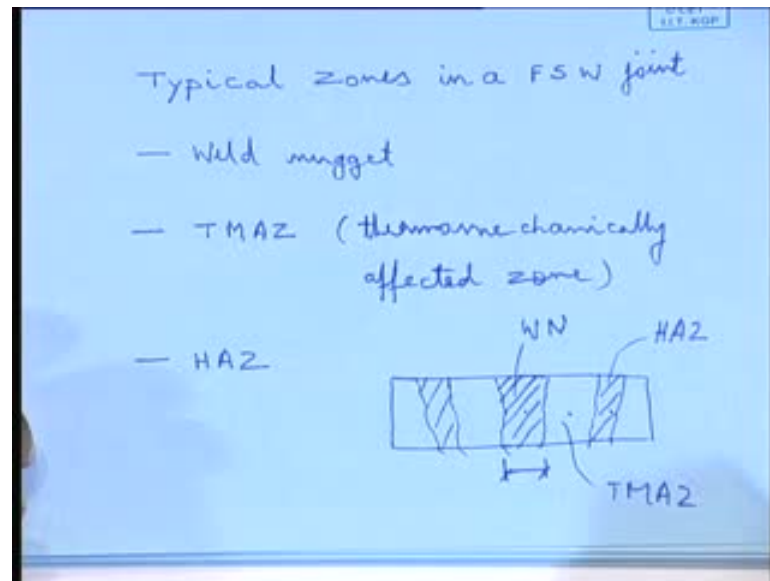 I.I.T. KGP
Typical zones in a FSW joint
— Weld nugget
— TMAZ (thermomechanically
affected zone)
— HAZ
WN
HAZ
TMAZ